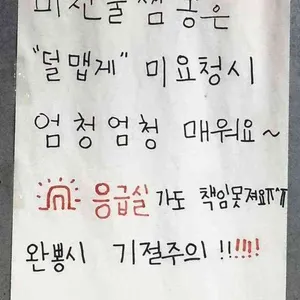 "덜맵게" 미요청시
엄청엄청 매워요~
응급실 가도 책임못져요ㅠ^ㅠ
완뽕시 기절주의 !!!!!!